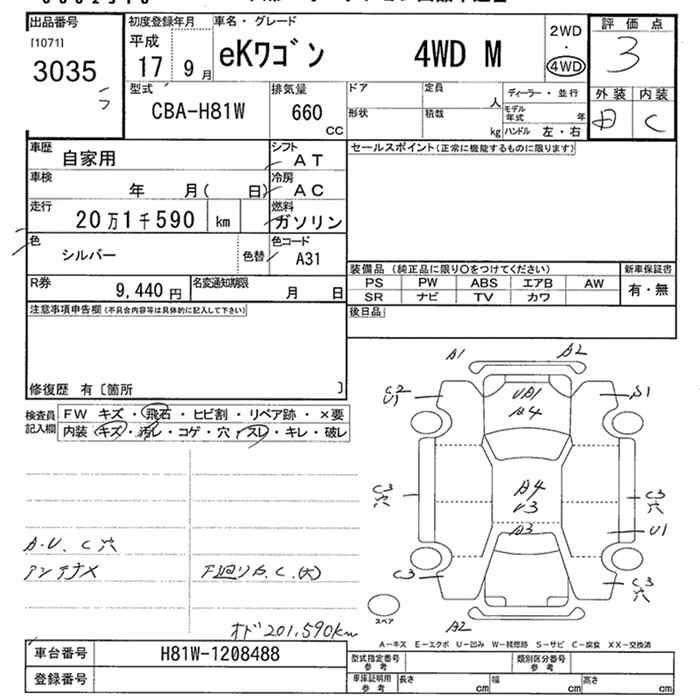 出品番号
[1071]
3035
初度登録年月
平成
17 9月
車名・グレード
eKワゴン 4WD M
2WD
・
4WD
評価点
3
外装 内装
C
型式
CBA-H81W
排気量
660
CC
ドア
定員
人
形状
積載
kg
ディーラー・並行
モデル年式 年
ハンドル 左・右
車歴
自家用
シフト
AT
車検
年 月( 日)
冷房
AC
走行
20万1千590 km
燃料
ガソリン
色
シルバー
色替
色コード
A31
R券
9,440円
名変通知期限
月 日
セールスポイント(正常に機能するものに限ります)
装備品 (純正品に限り○をつけてください)
新車保証書
PS PW ABS エアB AW
SR ナビ TV カワ
有・無
後日品
注意事項申告欄(不具合内容等は具体的に記入して下さい)
修復歴 有〔箇所 〕
検査員
記入欄
FW キズ・飛石・ヒビ割・リペア跡・×要
内装 キズ・汚レ・コゲ・穴・スレ・キレ・破レ
A・U、C穴
アンテナX
下廻りS.C.(大)
オド201,590km
A1 A2
C2
U1
A1
A4
A4
U3
A3
C3
穴
C3
穴
U1
C3
C3
穴
A2
スペア
A-キズ E-エクボ U-凹み W-補修跡 S-サビ C-腐食 XX-交換済
車台番号
H81W-1208488
登録番号
型式指定番号
参考
類別区分番号
参考
車庫証明用
参考
長さ cm
幅 cm
高さ cm